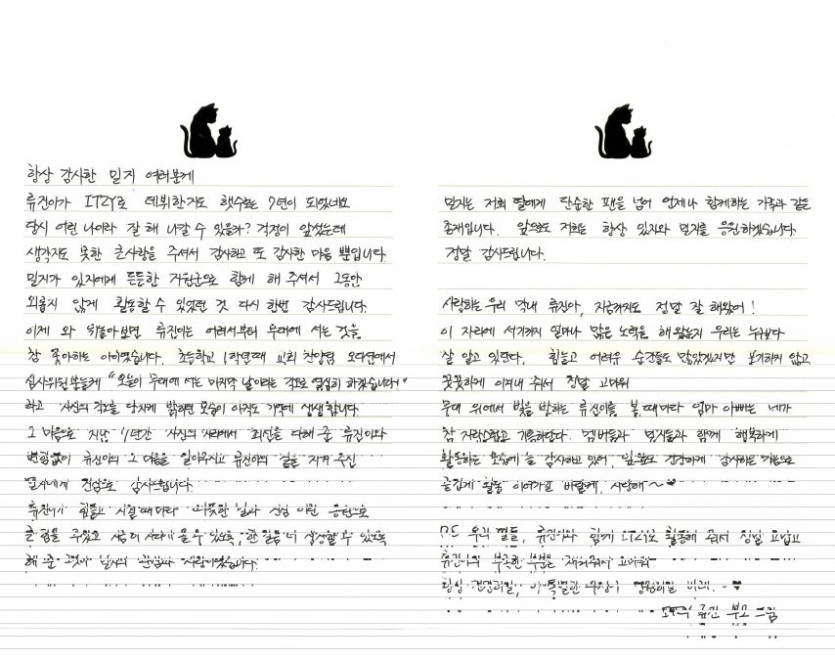 항상 감사한 믿지 여러분께
류진이가 ITZY로 데뷔한지도 햇수로는 7년이 되었네요
당시 어린 나이라 잘 해 나갈 수 있을까? 걱정이 앞섰는데
생각지도 못한 큰사랑을 주셔서 감사하고 또 감사한 마음 뿐입니다.
믿지가 있지에게 든든한 지원군으로 함께 해 주셔서 그동안
외롭지 않게 활동할 수 있었던 것 다시 한번 감사드립니다.
이제 와 뒤돌아보면 류진이는 어려서부터 무대에 서는 것을
참 좋아하는 아이였습니다. 초등학교 1학년때 교회 찬양팀 오디션에서
심사위원분들께 "오늘이 무대에 서는 마지막 날이라는 각오로 열심히 하겠습니다"
라고 자신의 각오를 당차게 밝히던 모습이 아직도 기억에 생생합니다
그 마음으로 지난 7년간 자신의 자리에서 최선을 다해 준 류진이와
변함없이 류진이의 그 마음을 믿어주시고 류진이의 곁을 지켜 주신
믿지에게 진심으로 감사드립니다.
류진이가 힘들고 지칠때마다 따뜻한 말과 진심 어린 응원으로
큰 힘을 주었고
해 준
믿지는 저희 딸에게 단순한 팬을 넘어 언제나 함께하는 가족과 같은
존재입니다. 앞으로도 저희는 항상 있지와 믿지를 응원하겠습니다.
정말 감사드립니다.
사랑하는 우리 막내 류진아, 지금까지도 정말 잘 해왔어!
이 자리에 서기까지 얼마나 많은 노력을 해왔는지 우리는 누구보다
잘 알고 있단다. 힘들고 어려운 순간들도 많았겠지만 포기하지 않고
꿋꿋하게 이겨내 줘서 정말 고마워
무대 위에서 빛을 발하는 류진이를 볼때마다 엄마 아빠는 네가
참 자랑스럽고 기특하단다. 멤버들과 믿지들과 함께 행복하게
활동하는 모습에 늘 감사하고 있어, 앞으로도 건강하게 감사하는 마음으로
즐겁게 활동 이어가길 바랄게, 사랑해~♥
P.S 우리 딸들, 류진이와 함께 ITZY로 활동해 줘서 정말 고맙고
류진이의 부족한 부분을 채워줘서 고마워
항상 건강하길,
류진 부모 드림